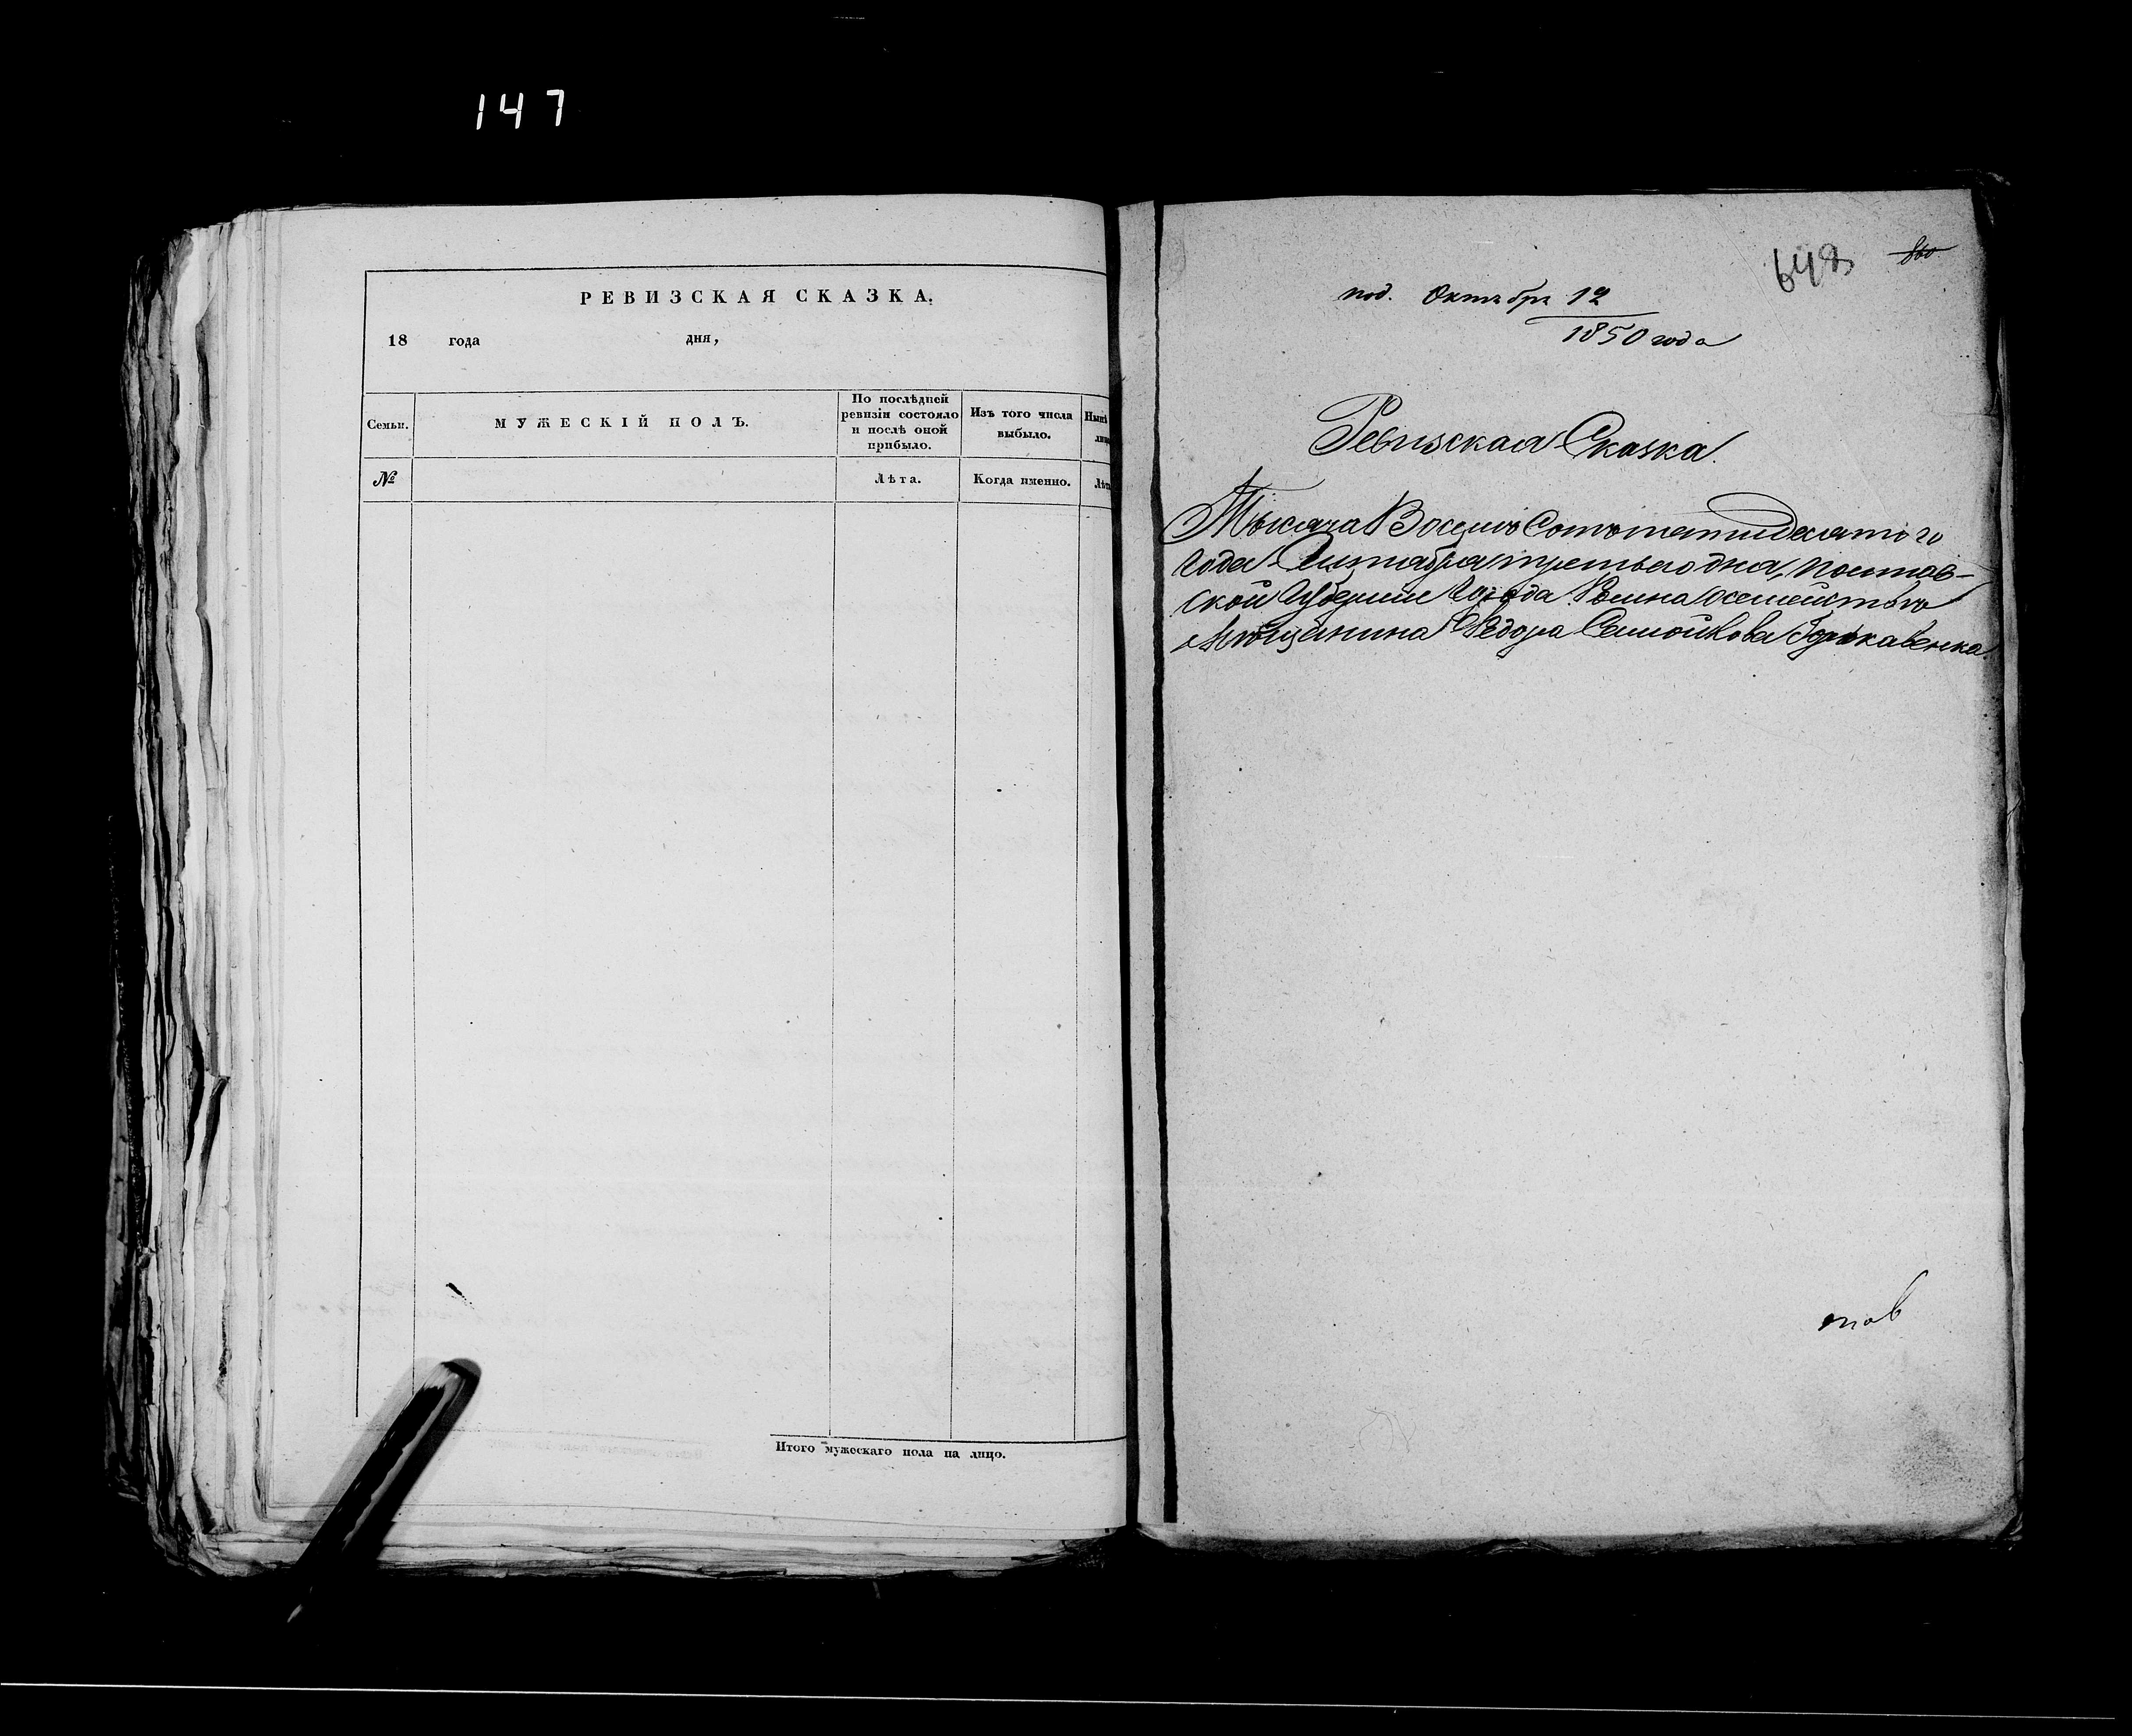 147
РЕВИЗСКАЯ СКАЗКА.
18 года дня,
Семьи.
МУЖЕСКІЙ ПОЛЪ.
По послѣдней ревизіи состояло и послѣ оной прибыло.
Изъ того числа выбыло.
№
Лѣта.
Когда именно.
Итого мужескаго пола на лицо.
648
под. Октября 12
1850 года
Ревизская Сказка.
Тысяча Восемь Сотъ пятидесятого
года Октября третьего дня, Полтав-
ской Губернии Города Ромна о семействѣ
Мѣщанина Федора Самойлова